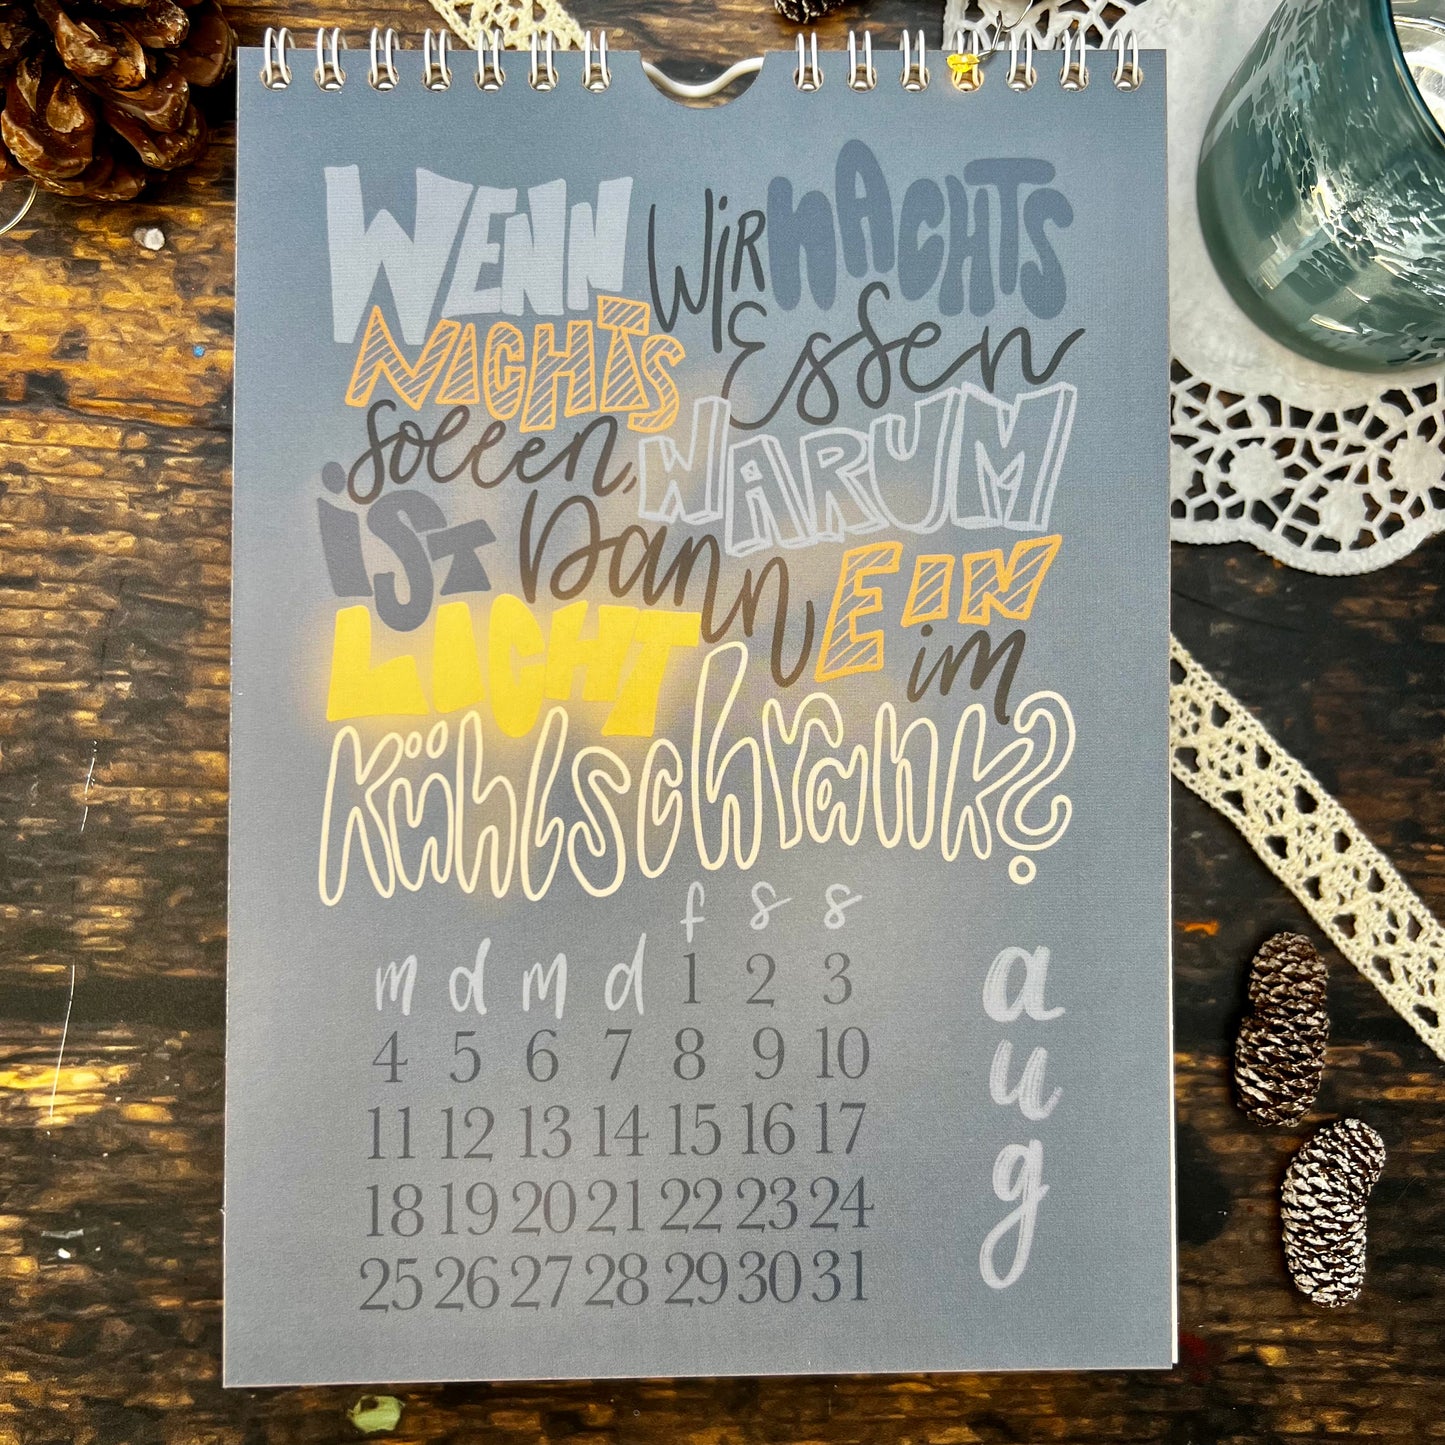 WENN WIR NACHTS
NICHTS Essen
sollen, WARUM
IST Dann EIN
LICHT im
Kühlschrank?
f s s
m d m d 1 2 3
4 5 6 7 8 9 10
11 12 13 14 15 16 17
18 19 20 21 22 23 24
25 26 27 28 29 30 31
aug